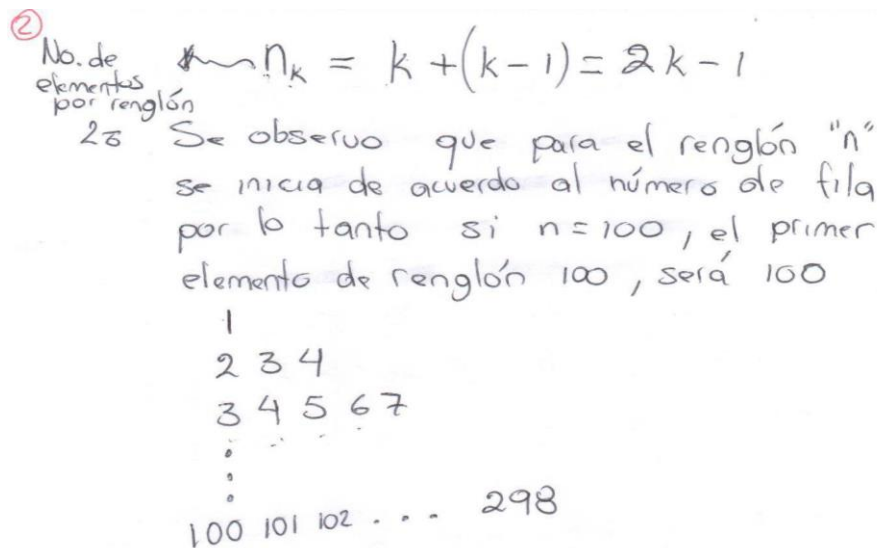 2
No. de elementos por renglón n_k = k + (k - 1) = 2k - 1
Se observo que para el renglón "n"
se inicia de acuerdo al número de fila
por lo tanto si n = 100, el primer
elemento de renglón 100, será 100
1
2 3 4
3 4 5 6 7
100 101 102 . . . 298